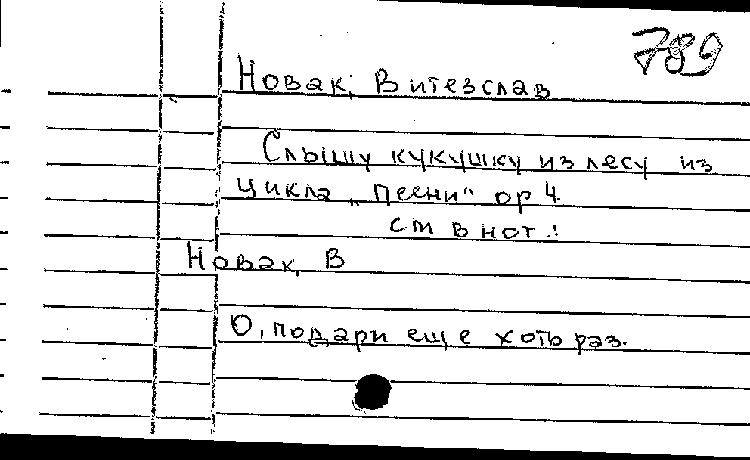 789
Новак, Витезслав
Слышу кукушку из лесу из
цикла „Песни" ор 4.
см в нот.:
Новак, В
О, подари еще хоть раз.